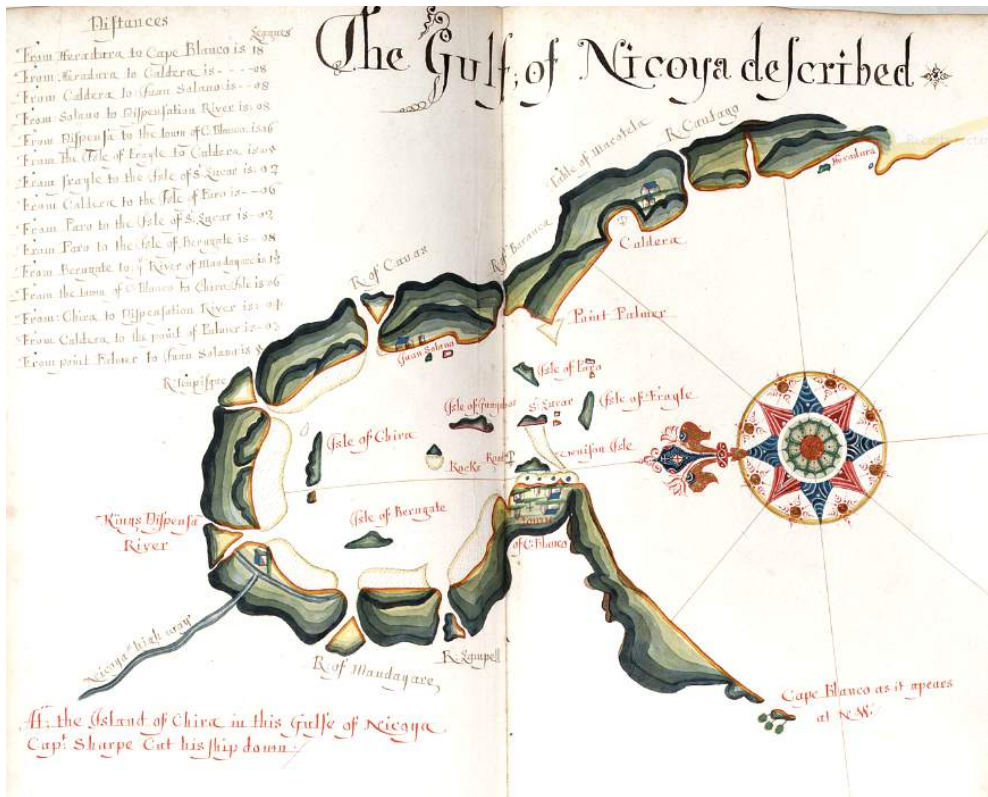 The Gulf, of Nicoya described
Distances
Leagues
From Heradura to Cape Blanco is 18
From Heradura to Caldera is - - - - 08
From Caldera to Juan Solano is - - 08
From Solano to Dispensation River is: 08
From Dispensa to the town of C: Blanco, is 16
From the Isle of Frayle to Caldera is
From Frayle to the Isle of S: Lucar is: 02
From Caldera to the Isle of Paro is - - 06
From Paro to the Isle of S: Lucar is - 02
From Paro to the Isle of Berugate is - 08
From Berugate to ye River of Mandayare is
From the town of C: Blanco to Chira Isle is 06
From: Chira to Dispensation River is: 04
From Caldera to the point of Palmer is - 03
From point Palmer to Juan Solano is
Table of Marotela
R: Cantago
Heradura
Caldera
R: of Baranca
R: of Cavas
Point Palmer
Juan Solano
R: tenpisque
Isle of Paro
S: Lucar
Isle of Frayle
Isle of Chira
Rocks
Road
Isle
Isle of Berugate
Kings Dispensa
River
Town
of C: Blanco
Nicoya high way
R: of Mandayare
R: Lampell
Cape Blanco as it apears
at N.W:
At: the Island of Chira in this Gulfe of Nicoya
Capt: Sharpe Cut his ship down: